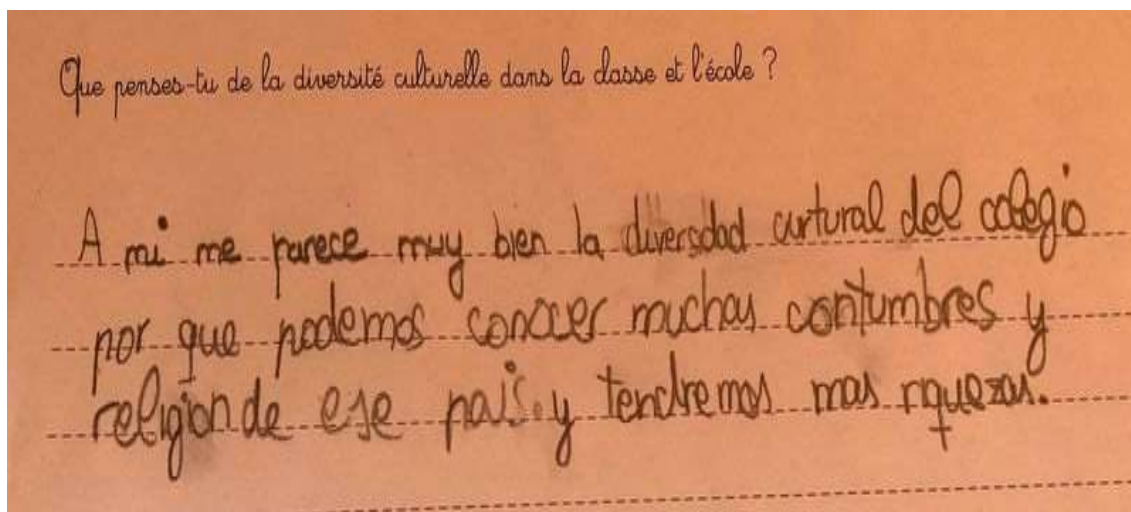 Que penses-tu de la diversité culturelle dans la classe et l'école ?
A mi me parece muy bien la diversdad curtural del colegio
por que podemos conocer muchas contumbres y
religion de ese pais y tendremos mas riquezas.